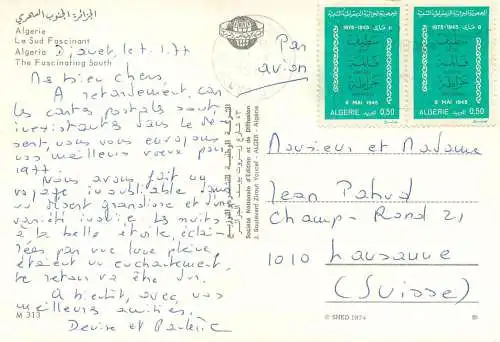 الجزائر الجنوب السحري
Algérie
Le Sud Fascinant
Algeria
The Fascinating South
Djanet, le 1.77
Mes bien Chers,
A retardement, car
les cartes postales sont
inexistantes dans le dé-
sert, nous vous envoyons
nos meilleurs voeux pour
1977.
Nous avons fait un
voyage inoubliable dans
un désert grandiose et d'une
variété inouïe. Les nuits
à la belle étoile, éclai-
rées par une lune pleine
étaient un enchantement,
le retour va être dur.
A bientôt, avec nos
meilleures amitiés.
Denise et
M 313
Par
avion
Société Nationale d'Edition et de Diffusion
3, Boulevard Zirout Youcef - ALGER - Algérie
1975-1945
8 MAI 1945
ALGERIE 0,50
1975-1945
8 MAI 1945
ALGERIE 0,50
Monsieur et Madame
Jean Pahud
Champ-Rond 21
1010 Lausanne
(Suisse)
© SNED 1974